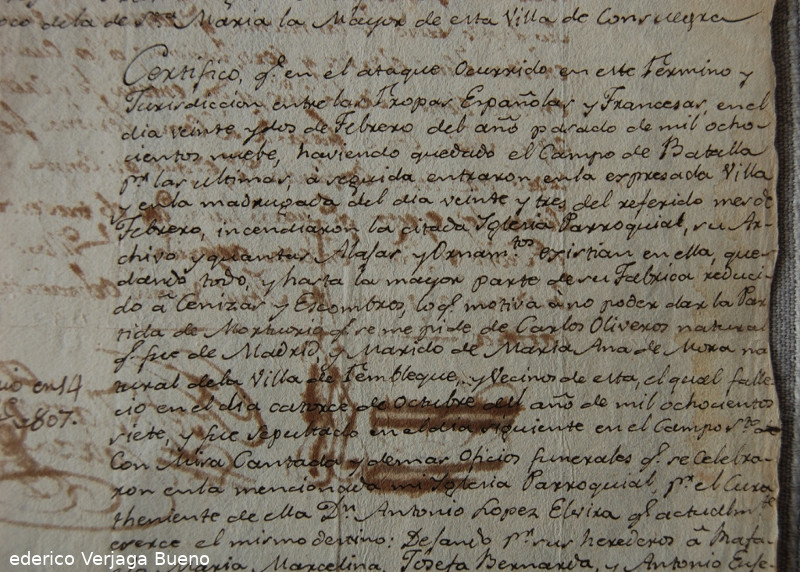 de la de Sta. Maria la Mayor de esta Villa de Consuegra
Certifico, qe. en el ataque ocurrido en este Termino y
Jurisdiccion entre las Tropas Españolas y Francesas, en el
dia veinte y dos de Febrero del año pasado de mil ocho-
cientos nuebe, haviendo quedado el Campo de Batalla
pr. las ultimas, à seguida entraron en la expresada Villa
y en la madrugada del dia veinte y tres del referido mes de
Febrero, incendiaron la citada Iglesia Parroquial, su Ar-
chivo y quantas Alajas y Ornamtos. existian en ella, que-
dando todo, y hasta la mayor parte de su Fabrica reduci-
do à Cenizas y Escombros, lo qe. motiva à no poder dar la Par-
tida de Mortuorio qe. se me pide de Carlos Oliveros natural
qe. fue de Madrid, y Marido de Maria Ana de Mora na-
tural de la Villa de Tembleque, y Vecinos de esta, el qual falle-
en 14
cio en el dia catorce de Octubre del año de mil ochocientos
1807.
siete, y fue sepultado en el dia siguiente en el Campo Sto. de
Con Misa Cantada y demas Oficios funerales qe. se celebra-
ron en la mencionada mi Iglesia Parroquial, pr. el Cura
theniente de ella Dn. Antonio Lopez Elvira qe. actualmte.
exerce el mismo destino: Dejando pr. sus herederos à
Maria, Marcelina, Josefa Bernarda, y Antonio
ederico Verjaga Bueno